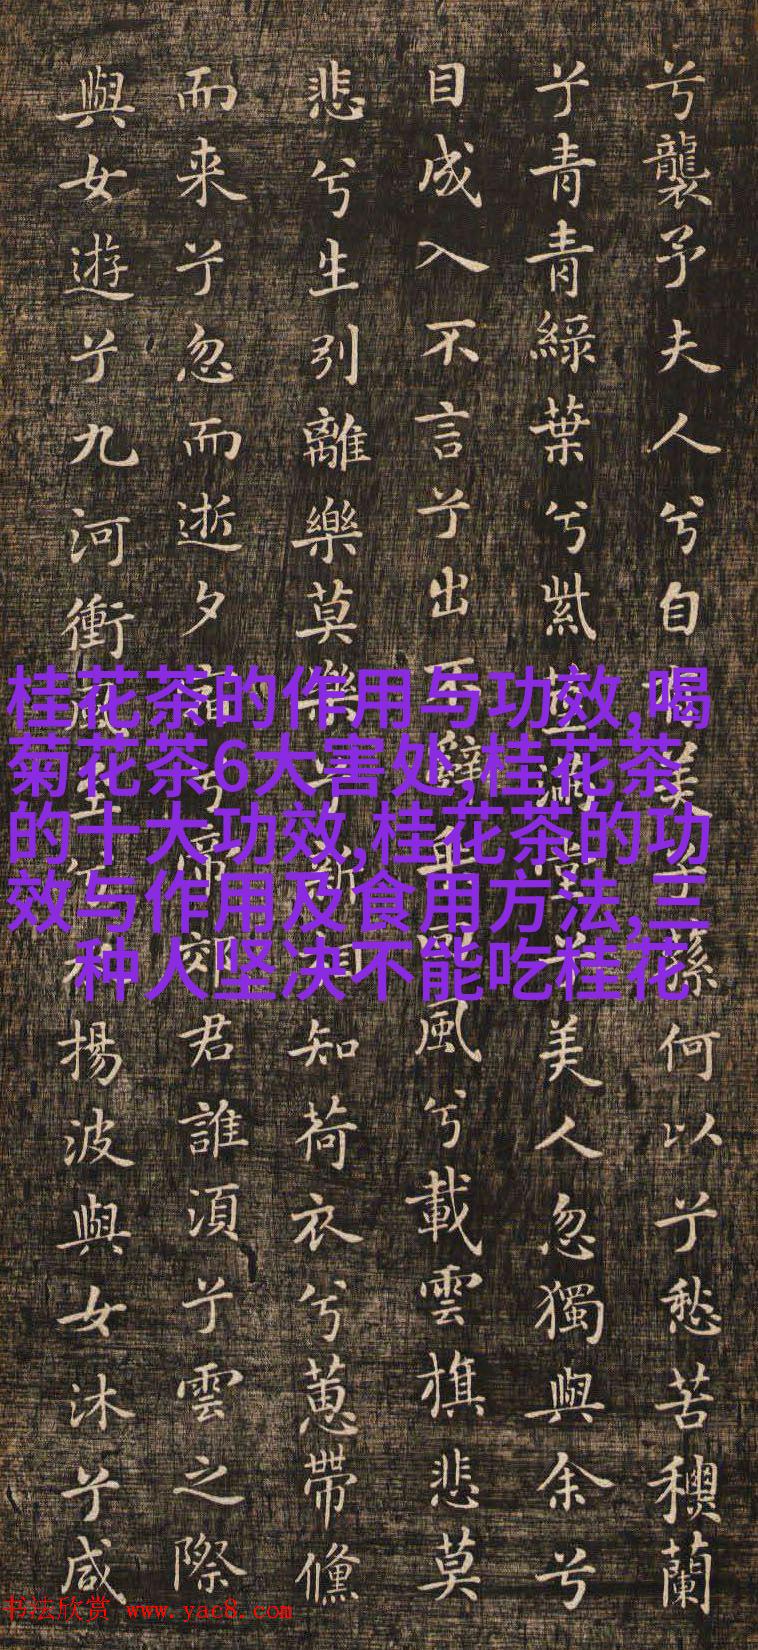 兮襲予夫人兮自美子蓀何以兮愁苦蘭
兮青青綠葉兮紫莖滿堂兮美人忽獨與余兮
目成入不言兮出不辭乘風兮載雲旗悲莫
悲兮生別離樂莫樂兮新相知荷衣兮蕙帶儵
而来兮忽而逝夕宿兮帝郊君誰須兮雲之際
與女遊兮九河衝風至兮水揚波與女沐兮咸
桂花茶的作用与功效,喝
菊花茶6大害处,桂花茶
的十大功效,桂花茶的功
效与作用及食用方法,三
种人坚决不能吃桂花
书法欣赏 www.yac8.com